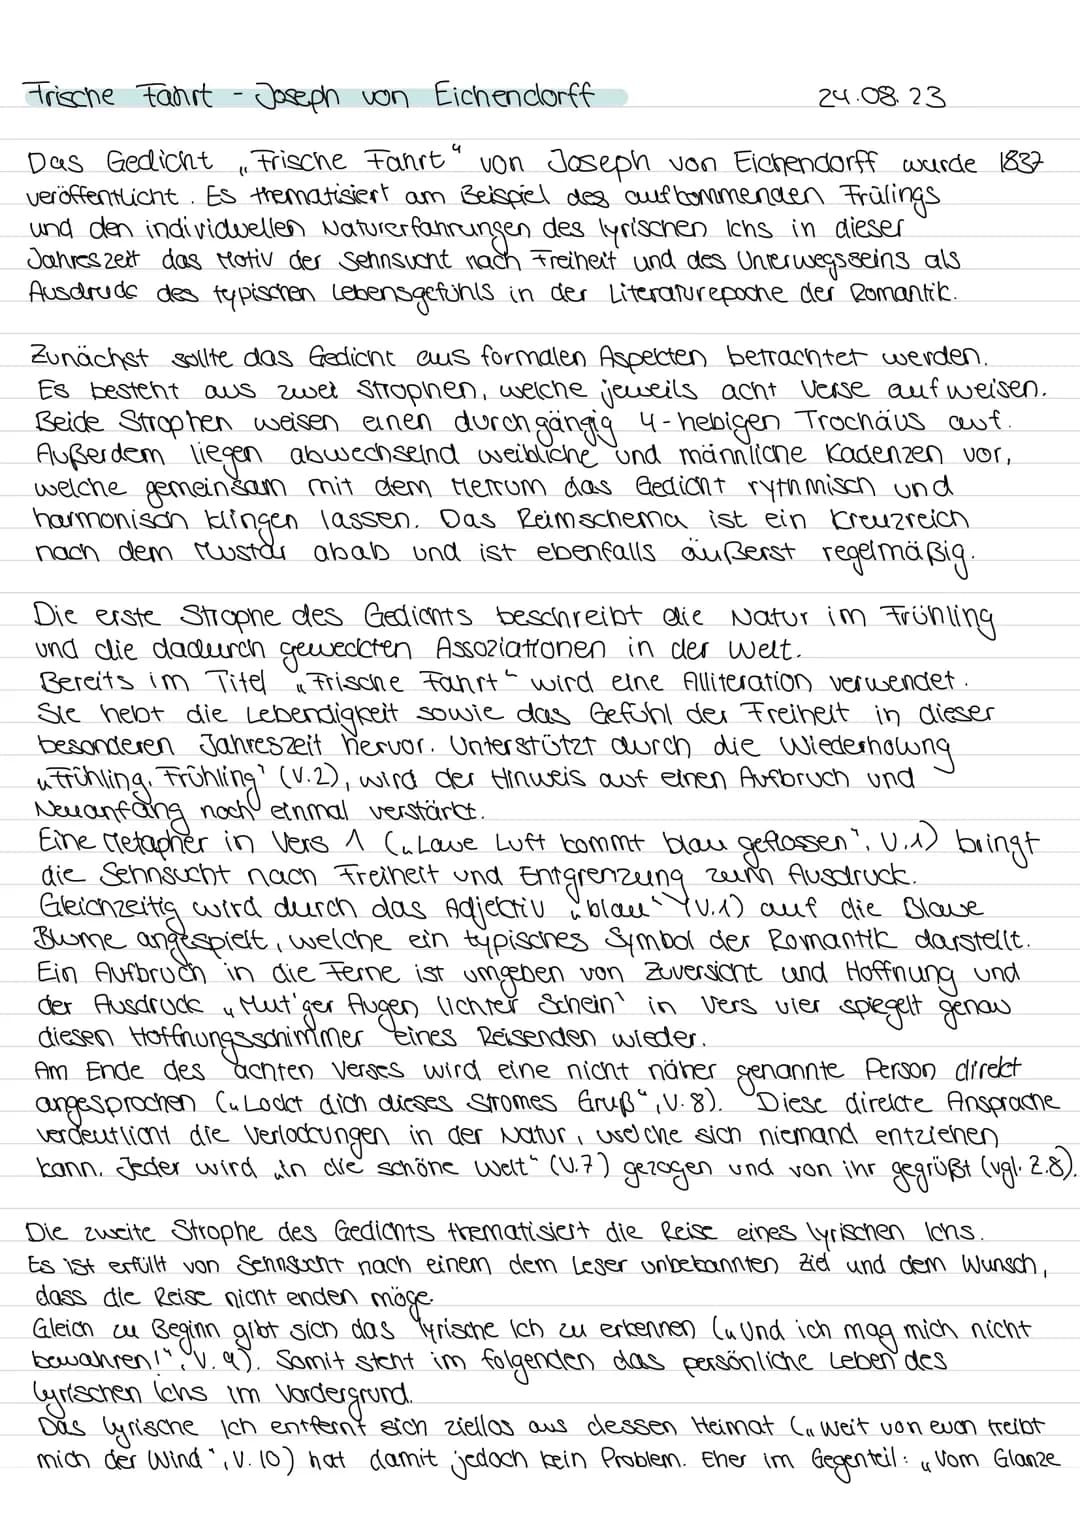 Frische Fahrt - Joseph von Eichendorff 24.08.23
Das Gedicht „Frische Fahrt“ von Joseph von Eichendorff wurde 1837
veröffentlicht. Es thematisiert am Beispiel des aufkommenden Frülings
und den individuellen Naturerfahrungen des lyrischen Ichs in dieser
Jahreszeit das Motiv der Sehnsucht nach Freiheit und des Unerwegsseins als
Ausdruck des typischen Lebensgefühls in der Literaturepoche der Romantik.
Zunächst sollte das Gedicht aus formalen Aspekten betrachtet werden.
Es besteht aus zwei Strophen, welche jeweils acht Verse aufweisen.
Beide Strophen weisen einen durchgängig 4-hebigen Trochäus auf.
Außerdem liegen abwechselnd weibliche und männliche Kadenzen vor,
welche gemeinsam mit dem Metrum das Gedicht rythmisch und
harmonisch klingen lassen. Das Reimschema ist ein Kreuzreich
nach dem Mustar abab und ist ebenfalls äußerst regelmäßig.
Die erste Strophe des Gedichts beschreibt die Natur im Frühling
und die dadurch geweckten Assoziationen in der Welt.
Bereits im Titel „Frische Fahrt“ wird eine Alliteration verwendet.
Sie hebt die Lebendigkeit sowie das Gefühl der Freiheit in dieser
besonderen Jahreszeit hervor. Unterstützt durch die Wiederholung
„Frühling, Frühling“ (V.2), wird der Hinweis auf einen Aufbruch und
Neuanfang noch einmal verstärkt.
Eine Metapher in Vers 1 („Laue Luft kommt blau geflossen“, V.1) bringt
die Sehnsucht nach Freiheit und Entgrenzung zum Ausdruck.
Gleichzeitig wird durch das Adjektiv „blau“ (V.1) auf die Blaue
Blume angespielt, welche ein typisches Symbol der Romantik darstellt.
Ein Aufbruch in die Ferne ist umgeben von Zuversicht und Hoffnung und
der Ausdruck „Mut'ger Augen lichter Schein“ in Vers vier spiegelt genau
diesen Hoffnungsschimmer eines Reisenden wieder.
Am Ende des achten Verses wird eine nicht näher genannte Person direkt
angesprochen („Lockt dich dieses Stromes Gruß“, V.8). Diese direkte Ansprache
verdeutlicht die Verlockungen in der Natur, welche sich niemand entziehen
kann. Jeder wird „in die schöne Welt“ (V.7) gezogen und von ihr gegrüßt (vgl. Z.8).
Die zweite Strophe des Gedichts thematisiert die Reise eines lyrischen Ichs.
Es ist erfüllt von Sehnsucht nach einem dem Leser unbekannten Ziel und dem Wunsch,
dass die Reise nicht enden möge.
Gleich zu Beginn gibt sich das lyrische Ich zu erkennen („Und ich mag mich nicht
bewahren!“, V.9). Somit steht im folgenden das persönliche Leben des
lyrischen Ichs im Vordergrund.
Das lyrische Ich entfernt sich ziellos aus dessen Heimat („Weit von euch treibt
mich der Wind“, V.10) hat damit jedoch kein Problem. Eher im Gegenteil: „Vom Glanze